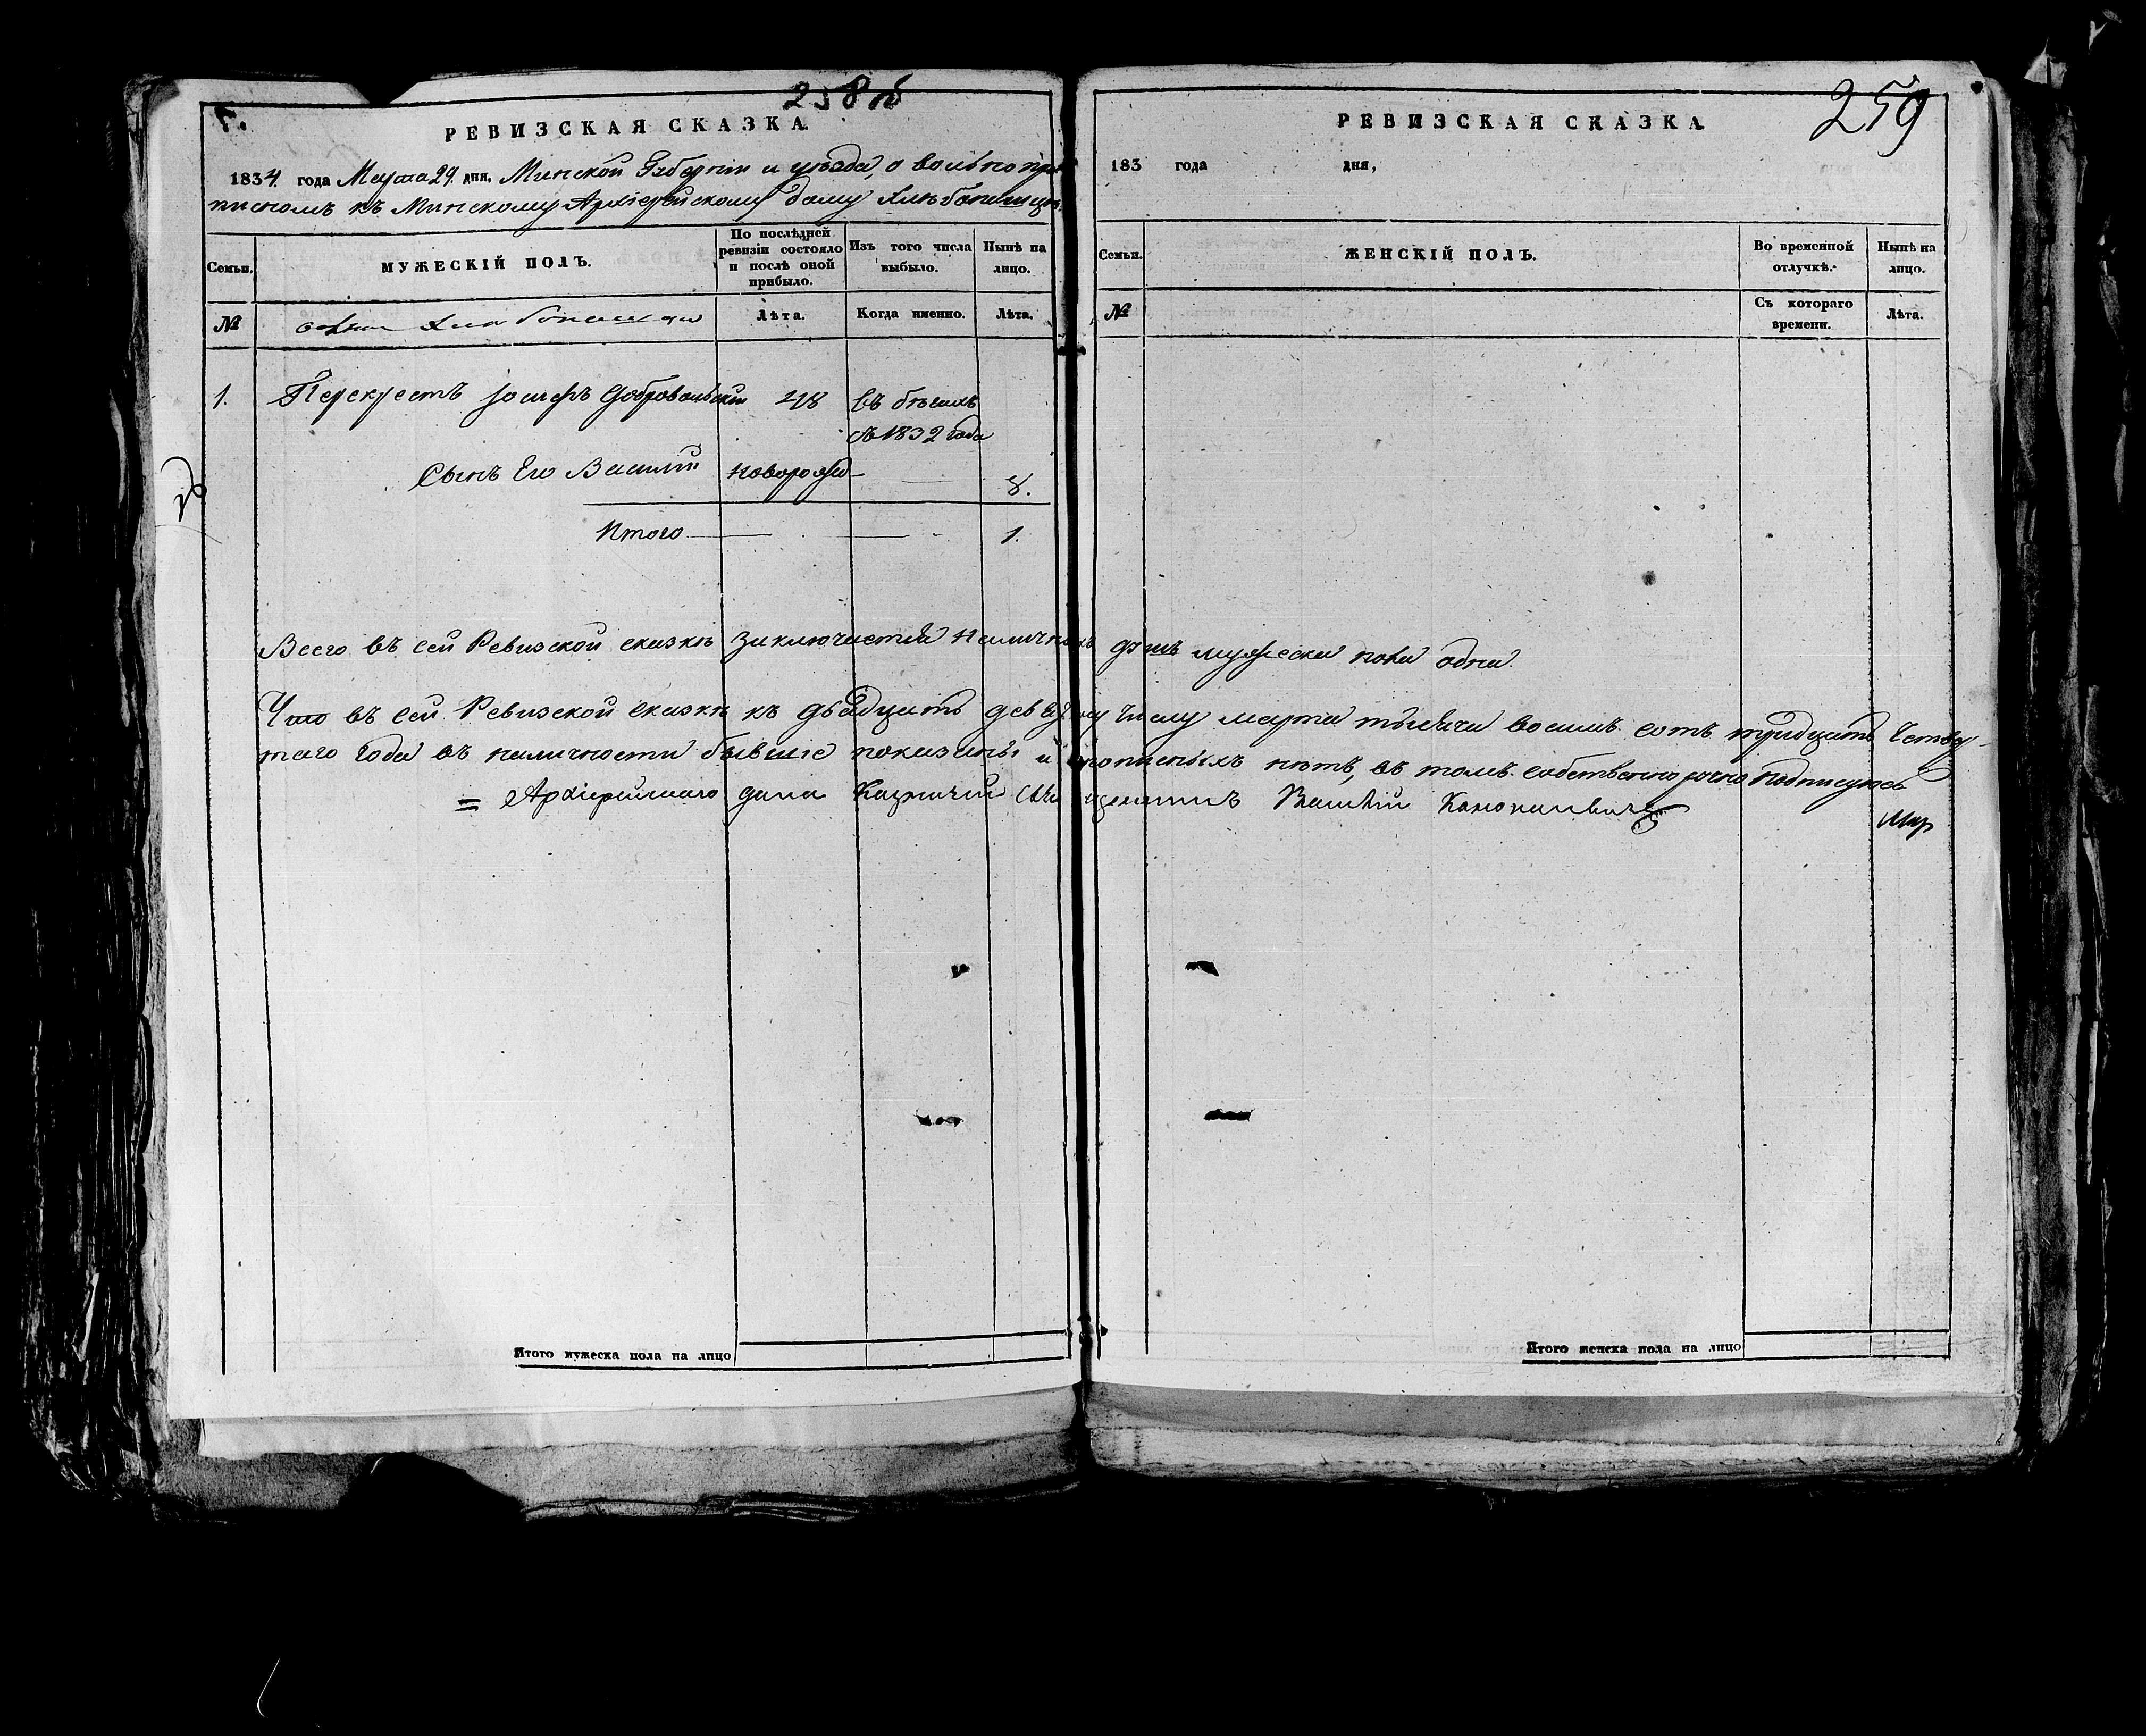 258 об
259
РЕВИЗСКАЯ СКАЗКА.
1834 года Марта 29 дня, Минской Губерніи и уѣзда, о вольнопри
писномъ къ Минскому Архіерейскому дому Хлѣбопашцѣ
Семьи.
МУЖЕСКІЙ ПОЛЪ.
По послѣдней ревизіи состояло и послѣ оной прибыло.
Изъ того числа выбыло.
Нынѣ на лицо.
№
Лѣта.
Когда именно.
Лѣта.
1. Перекрестъ Іосифъ Добровольскій 48 въ бѣгахъ
съ 1832 года
Сынъ Его Василій новорожд — 8.
Итого — — 1.
РЕВИЗСКАЯ СКАЗКА.
183 года дня,
Семьи.
ЖЕНСКІЙ ПОЛЪ.
Во временной отлучкѣ.
Нынѣ на лицо.
№
Съ котораго времени.
Лѣта.
Всего въ сей Ревизской сказкѣ заключается наличныхъ душъ мужеска пола одна.
Что въ сей Ревизской сказкѣ къ двадцать девятому числу марта тысяча восемь сотъ тридцать четвер-
таго года въ наличности бывшіе показаны и прописныхъ нѣтъ, въ томъ собственноручно подписуюсь
= Архіерейскаго дома Казначей Священникъ Василій
Итого мужеска пола на лицо
Итого женска пола на лицо